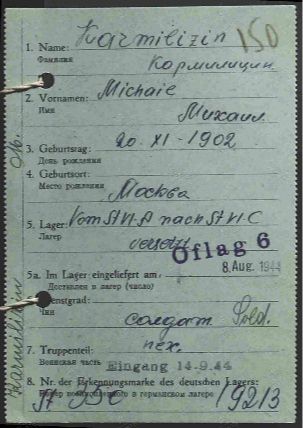 Karmilizin 150
1. Name:
Фамилия
Кормилицин
Michaie
2. Vornamen:
Имя
Михаил
3. Geburtstag: 20. XI - 1902
День рождения
4. Geburtsort:
Место рождения
Москва
5. Lager: Vom St VI.A nach St VI.C
Лагерь versetzt
Oflag 6
8. Aug. 1944
5a. Im Lager eingeliefert am
Доставлен в лагерь (число)
Dienstgrad:
Чин
солдат Sold.
7. Truppenteil: пех.
Воинская часть Eingang 14.9.44
8. Nr. der Erkennungsmarke des deutschen Lagers:
военнопленного в германском лагере
19213
Karmilizin